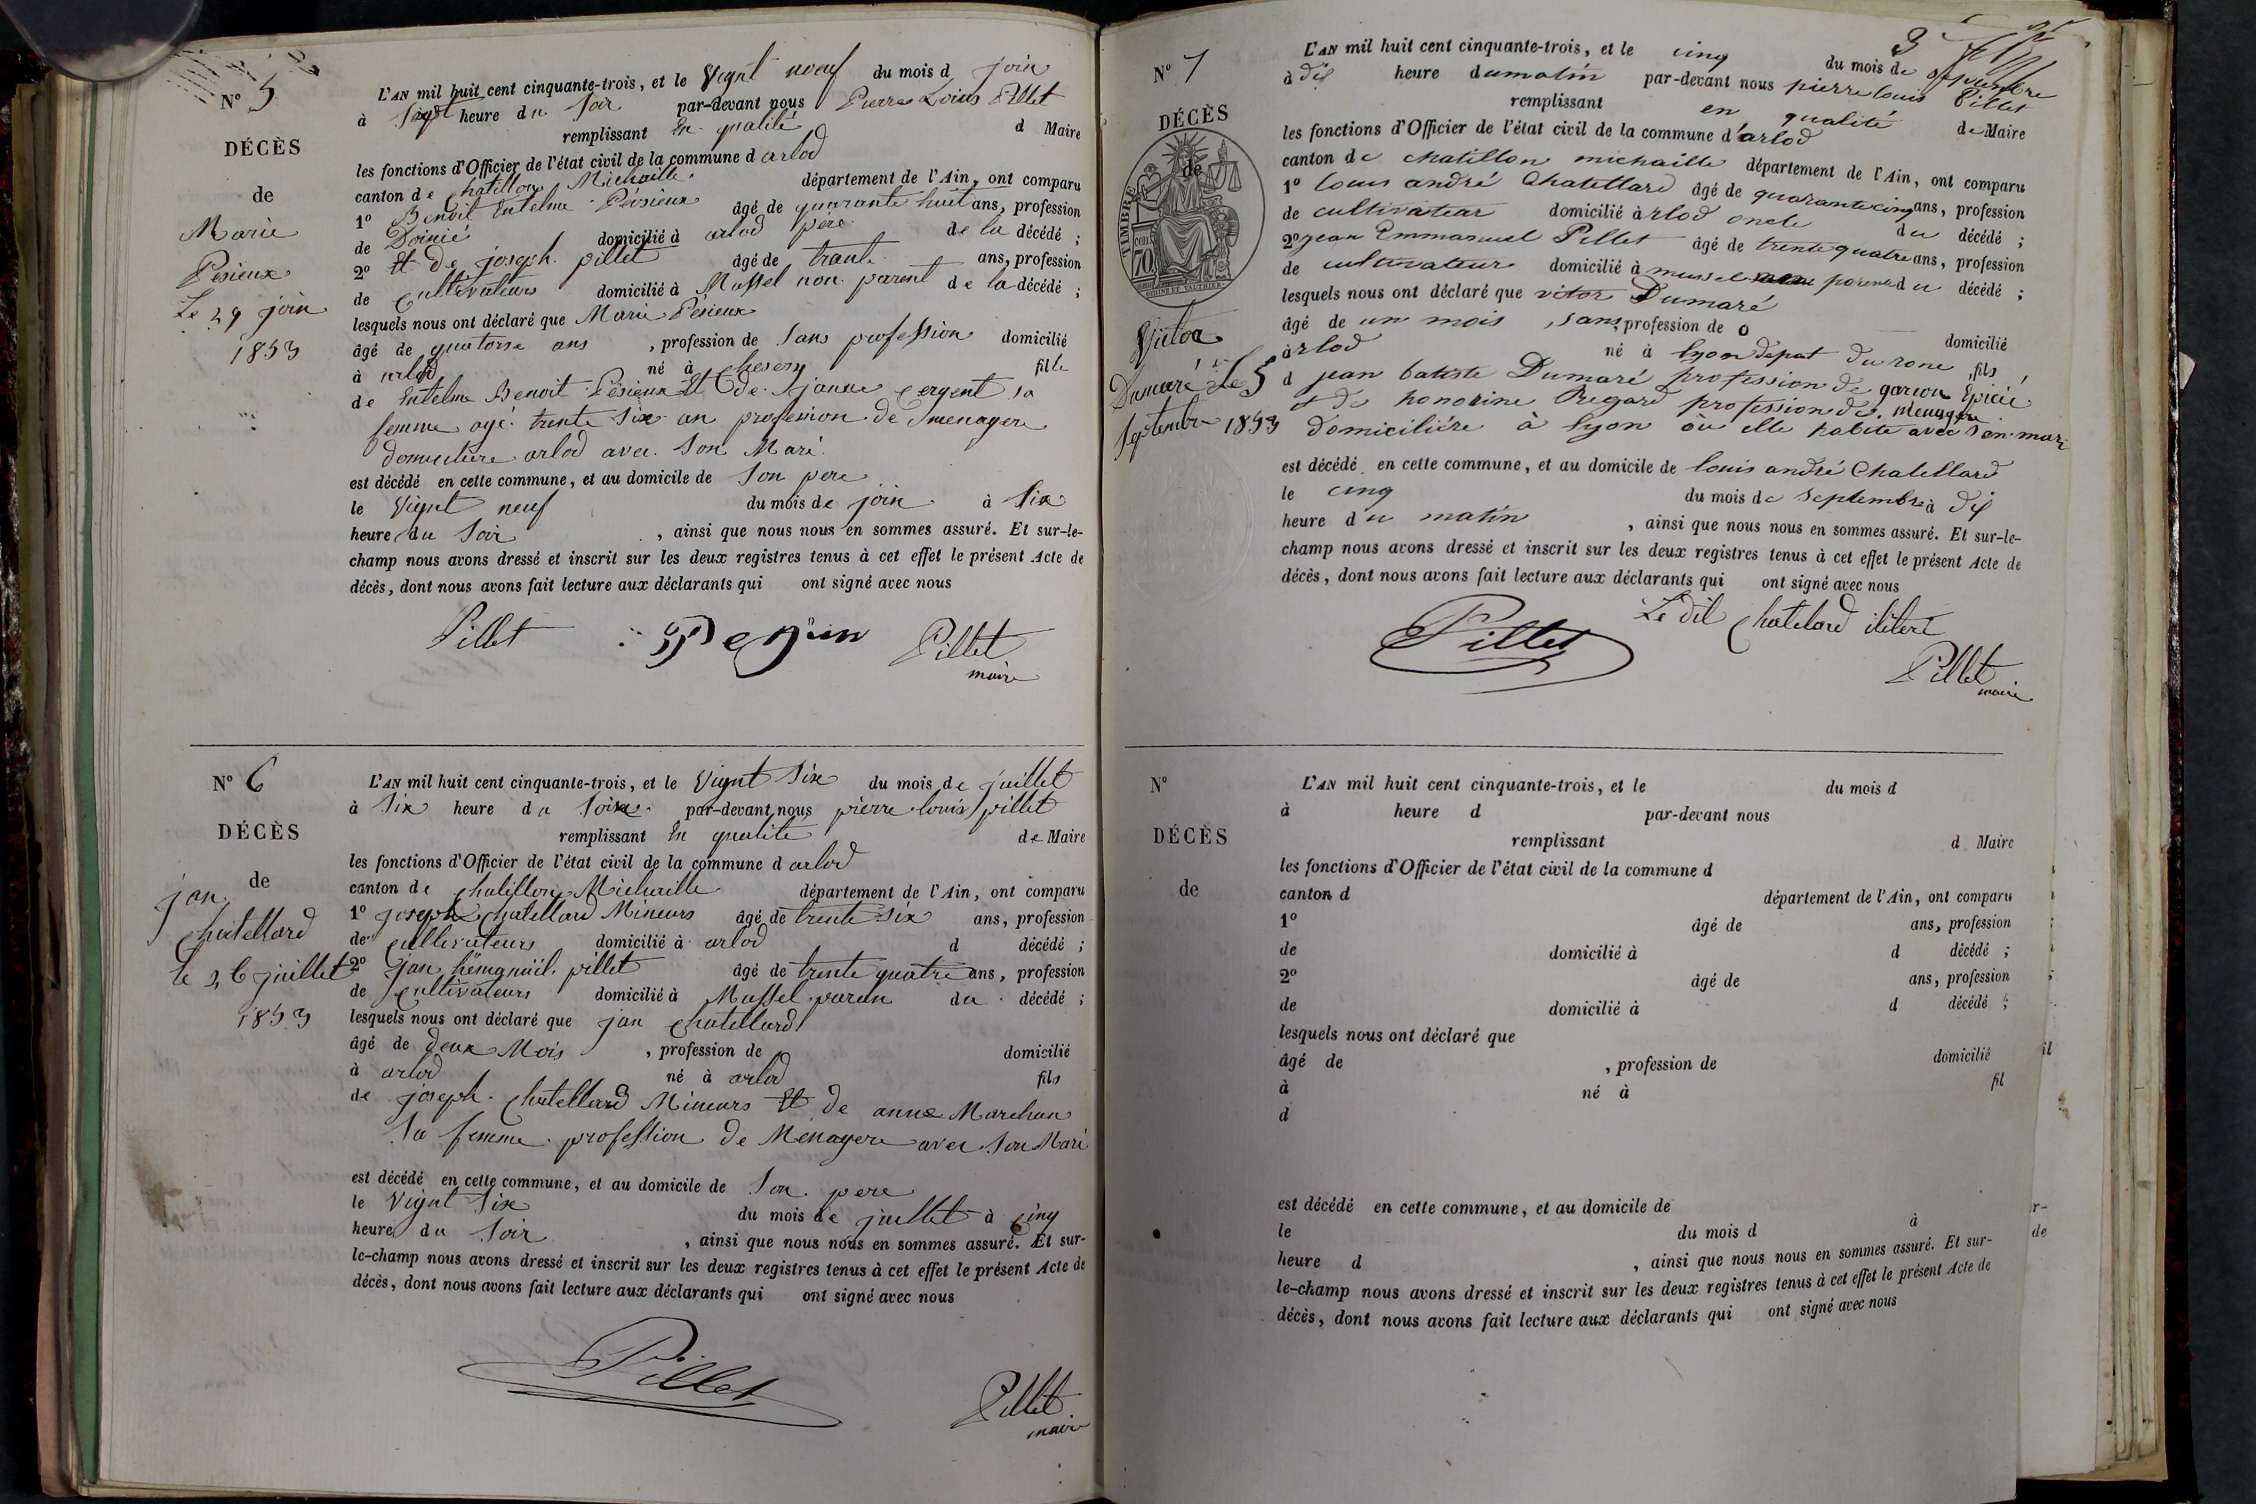 N° 5
DÉCÈS
de
Marie
Pesieux
Le 29 join
1853
L'AN mil huit cent cinquante-trois, et le Vignt neuf du mois d join
à Sept heure du Soir par-devant nous Pierre Louis Pillet
remplissant En qualité d Maire
les fonctions d'Officier de l'état civil de la commune d arlod
canton de Chatillon Michaille département de l'Ain, ont comparu
1° Benoit Entelme Pésieux âgé de quarante huit ans, profession
de domicilié à arlod père de la décédé ;
2° Et De joseph pillet âgé de trante ans, profession
de Cultivateurs domicilié à Mussel non parent de la décédé ;
lesquels nous ont déclaré que Marie Pésieux
âgé de quatorse ans , profession de Sans profession domicilié
à arlod né à chesery fille
de Entelme Benoit Pésieux Et de janne cergent sa
femme agé trente Six an profession de menagere
domiciliere arlod avec Son Mari
est décédé en cette commune, et au domicile de Son pere
le Vignt neuf du mois de join à Six
heure du Soir , ainsi que nous nous en sommes assuré. Et sur-le-
champ nous avons dressé et inscrit sur les deux registres tenus à cet effet le présent Acte de
décès, dont nous avons fait lecture aux déclarants qui ont signé avec nous
Pillet Pillet
maire
N° 6
DÉCÈS
de
jan
chatellard
le 26 juillet
1853
L'AN mil huit cent cinquante-trois, et le Vignt Six du mois de juillet
à Six heure du Soire par-devant nous pierre louis pillet
remplissant En qualité de Maire
les fonctions d'Officier de l'état civil de la commune d arlod
canton de Chatillon Michaille département de l'Ain, ont comparu
1° joseph Chatellard Mineurs âgé de trente six ans, profession
de Cultivateurs domicilié à arlod d décédé ;
2° jan hémanuil pillet âgé de trente quatre ans, profession
de Cultivateurs domicilié à Mussel paran du décédé ;
lesquels nous ont déclaré que jan Chatellard
âgé de deux Mois , profession de domicilié
à arlod né à arlod fils
de joseph Chatellard Mineurs Et de anne Marchan
Sa femme profession de Menagere avec Son Mari
est décédé en cette commune, et au domicile de Son pere
le Vignt Six du mois de juillet à cinq
heure du Soir , ainsi que nous nous en sommes assuré. Et sur-
le-champ nous avons dressé et inscrit sur les deux registres tenus à cet effet le présent Acte de
décès, dont nous avons fait lecture aux déclarants qui ont signé avec nous
Pillet Pillet
maire
3
N° 7
DÉCÈS
de
TIMBRE
70
Victor
Dumaré le 5
Septembre 1853
L'AN mil huit cent cinquante-trois, et le cinq du mois de septembre
à dix heure du matin par-devant nous pierre louis Pillet
remplissant en qualité de Maire
les fonctions d'Officier de l'état civil de la commune d'arlod
canton de chatillon michaille département de l'Ain, ont comparu
1° louis andré Chatellard âgé de quarante cinq ans, profession
de cultivateur domicilié à arlod oncle du décédé ;
2° jean Emmanuel Pillet âgé de trente quatre ans, profession
de cultivateur domicilié à mussel parend du décédé ;
lesquels nous ont déclaré que vitor Dumaré
âgé de un mois , sans profession de o domicilié
à arlod né à lyon depat du rone , fils
d jean batiste Dumaré profession de garcon Epicié
et de honorine Regard profession de menagère
domiciliére à lyon où elle habite avec son mari
est décédé en cette commune, et au domicile de louis andré Chatellard
le cinq du mois de septembre à dix
heure du matin , ainsi que nous nous en sommes assuré. Et sur-le-
champ nous avons dressé et inscrit sur les deux registres tenus à cet effet le présent Acte de
décès, dont nous avons fait lecture aux déclarants qui ont signé avec nous
Le dit Chatelard ilitere
Pillet Pillet
maire
N°
DÉCÈS
de
L'AN mil huit cent cinquante-trois, et le du mois d
à heure d par-devant nous
remplissant d Maire
les fonctions d'Officier de l'état civil de la commune d
canton d département de l'Ain, ont comparu
1° âgé de ans, profession
de domicilié à d décédé ;
2° âgé de ans, profession
de domicilié à d décédé ;
lesquels nous ont déclaré que
âgé de , profession de domicilié
à né à fil
d
est décédé en cette commune, et au domicile de
le du mois d à
heure d , ainsi que nous nous en sommes assuré. Et sur-
le-champ nous avons dressé et inscrit sur les deux registres tenus à cet effet le présent Acte de
décès, dont nous avons fait lecture aux déclarants qui ont signé avec nous